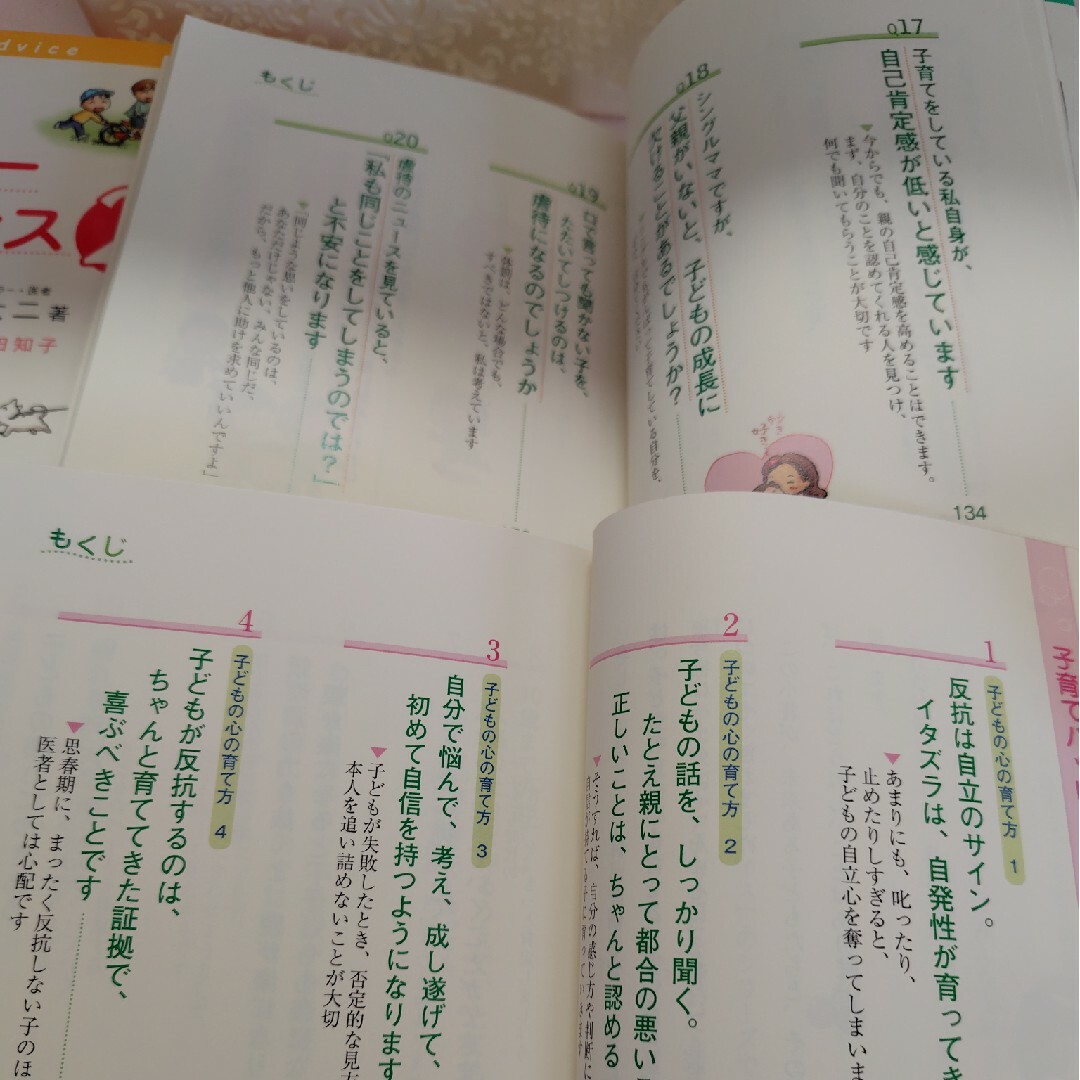 dvice
ー
ス
ー・医者
二 著
田知子
もくじ
Q17
子育てをしている私自身が、
自己肯定感が低いと感じています
▼今からでも、親の自己肯定感を高めることはできます。
まず、自分のことを認めてくれる人を見つけ、
何でも聞いてもらうことが大切です
134
Q18
シングルママですが、
父親がいないと、子どもの成長に
欠けることがあるでしょうか？
Q19
口で言っても聞かない子を、
たたいてしつけるのは、
虐待になるのでしょうか
▼体罰は、どんな場合でも、
すべきではないと、私は考えています
Q20
虐待のニュースを見ていると、
「私も同じことをしてしまうのでは？」
と不安になります
▼「同じような思いをしているのは、
あなただけじゃない、みんな同じだ、
だから、もっと他人に助けを求めていいんですよ」
もくじ
子育て
1
子どもの心の育て方 1
反抗は自立のサイン。
イタズラは、自発性が育ってき
▼あまりにも、叱ったり、
止めたりしすぎると、
子どもの自立心を奪ってしまいま
2
子どもの心の育て方 2
子どもの話を、しっかり聞く。
たとえ親にとって都合の悪い
正しいことは、ちゃんと認める
▼そうすれば、自分の感じ方や判断に
3
子どもの心の育て方 3
自分で悩んで、考え、成し遂げて、
初めて自信を持つようになります
▼子どもが失敗したとき、否定的な見方
本人を追い詰めないことが大切
4
子どもの心の育て方 4
子どもが反抗するのは、
ちゃんと育ててきた証拠で、
喜ぶべきことです
▼思春期に、まったく反抗しない子のほ
医者としては心配です